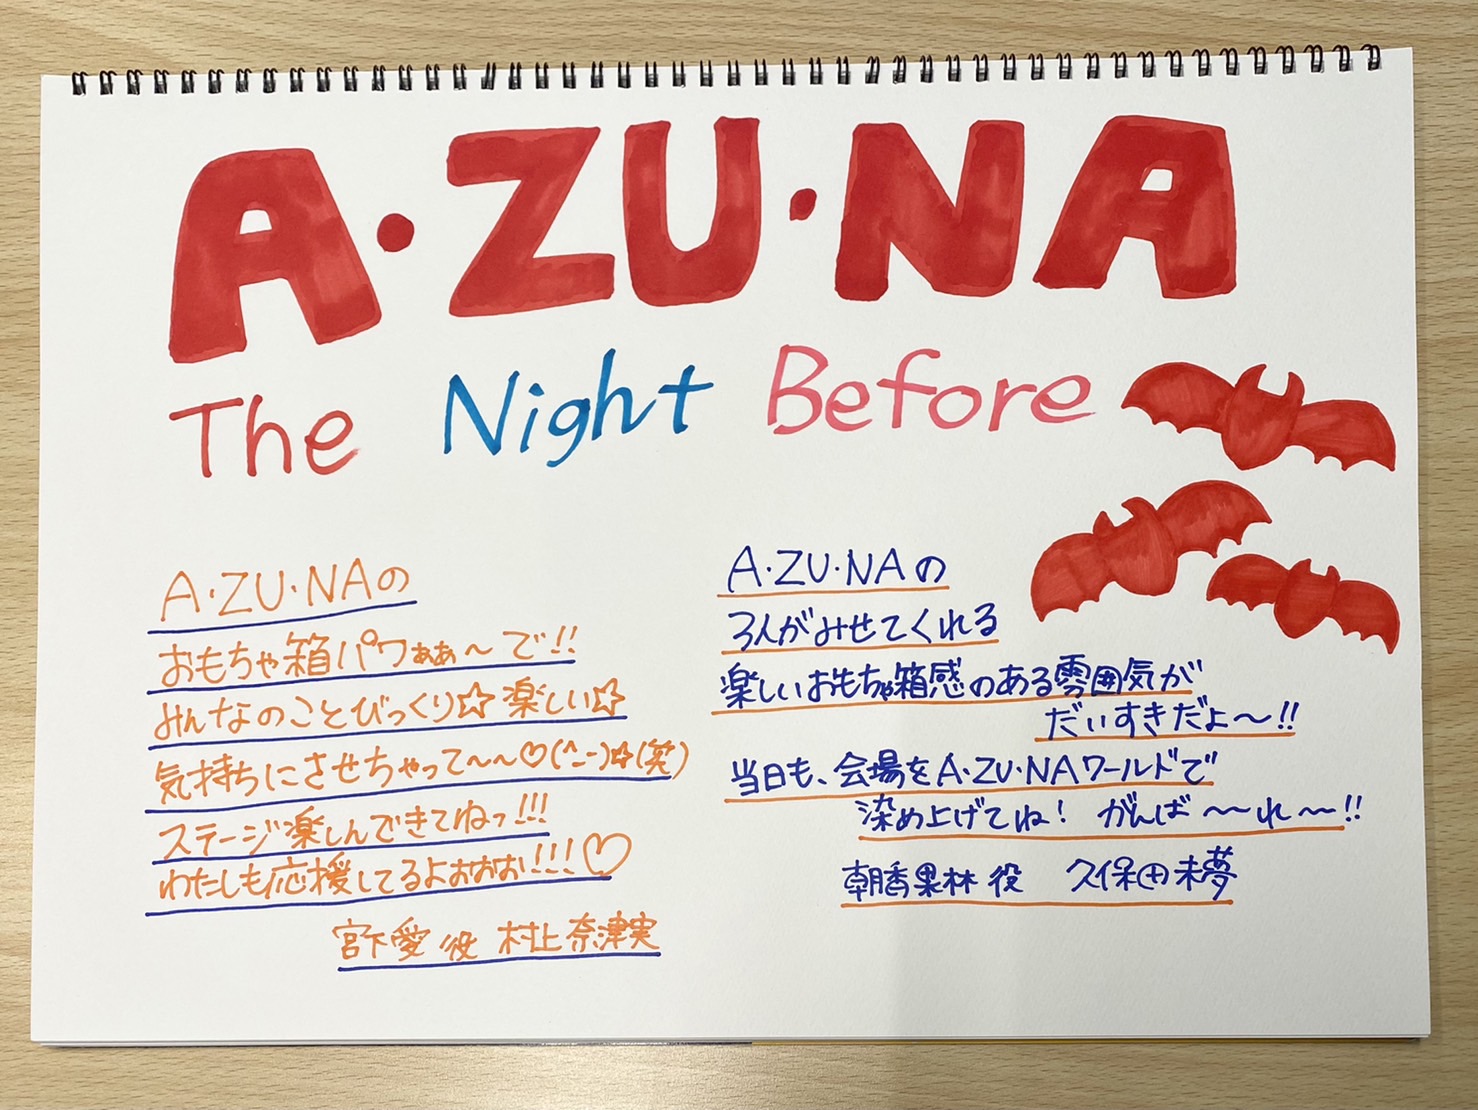 A・ZU・NA
The Night Before
A・ZU・NAの
おもちゃ箱パワぁぁぁ〜で!!
みんなのことびっくり☆楽しい☆
気持ちにさせちゃって〜〜♡(^_-)☆(笑)
ステージ楽しんできてねっ!!!
わたしも応援してるよぉぉぉぉ!!!♡
宮下愛 役 村上奈津実
A・ZU・NAの
3人がみせてくれる
楽しいおもちゃ箱感のある雰囲気が
だいすきだよ〜!!
当日も、会場をA・ZU・NAワールドで
染め上げてね! がんば〜〜れ〜!!
朝香果林 役 久保田未夢